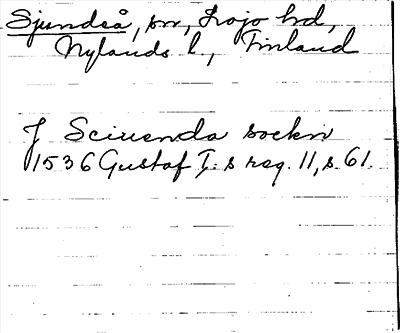 Sjundeå, sn, Lojo hd,
Nylands l., Finland
J Sciuenda sockn
1536 Gustaf I:s reg. 11, s. 61.